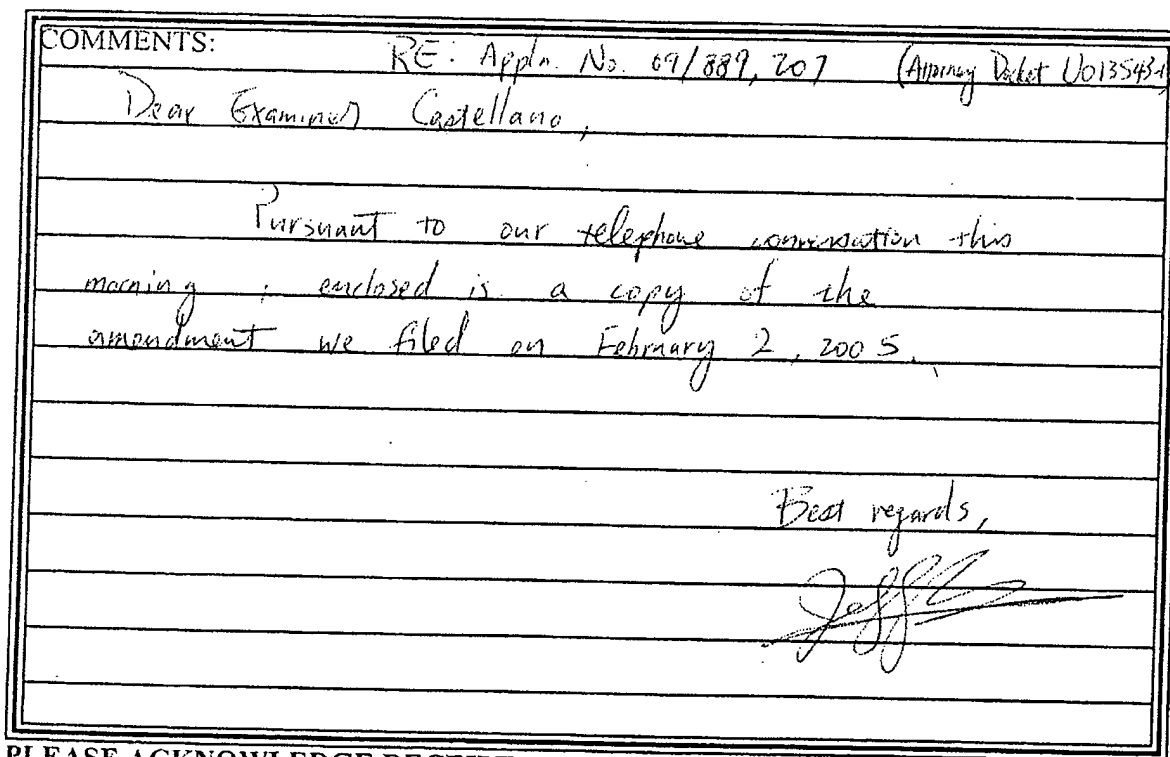 COMMENTS: RE: Appln. No. 09/889,207 (Attorney Docket U013543-1)
Dear Examiner Castellano,
Pursuant to our telephone conversation this
morning, enclosed is a copy of the
amendment we filed on February 2, 2005.
Best regards,
Jeff
PLEASE ACKNOWLEDGE RECEIPT